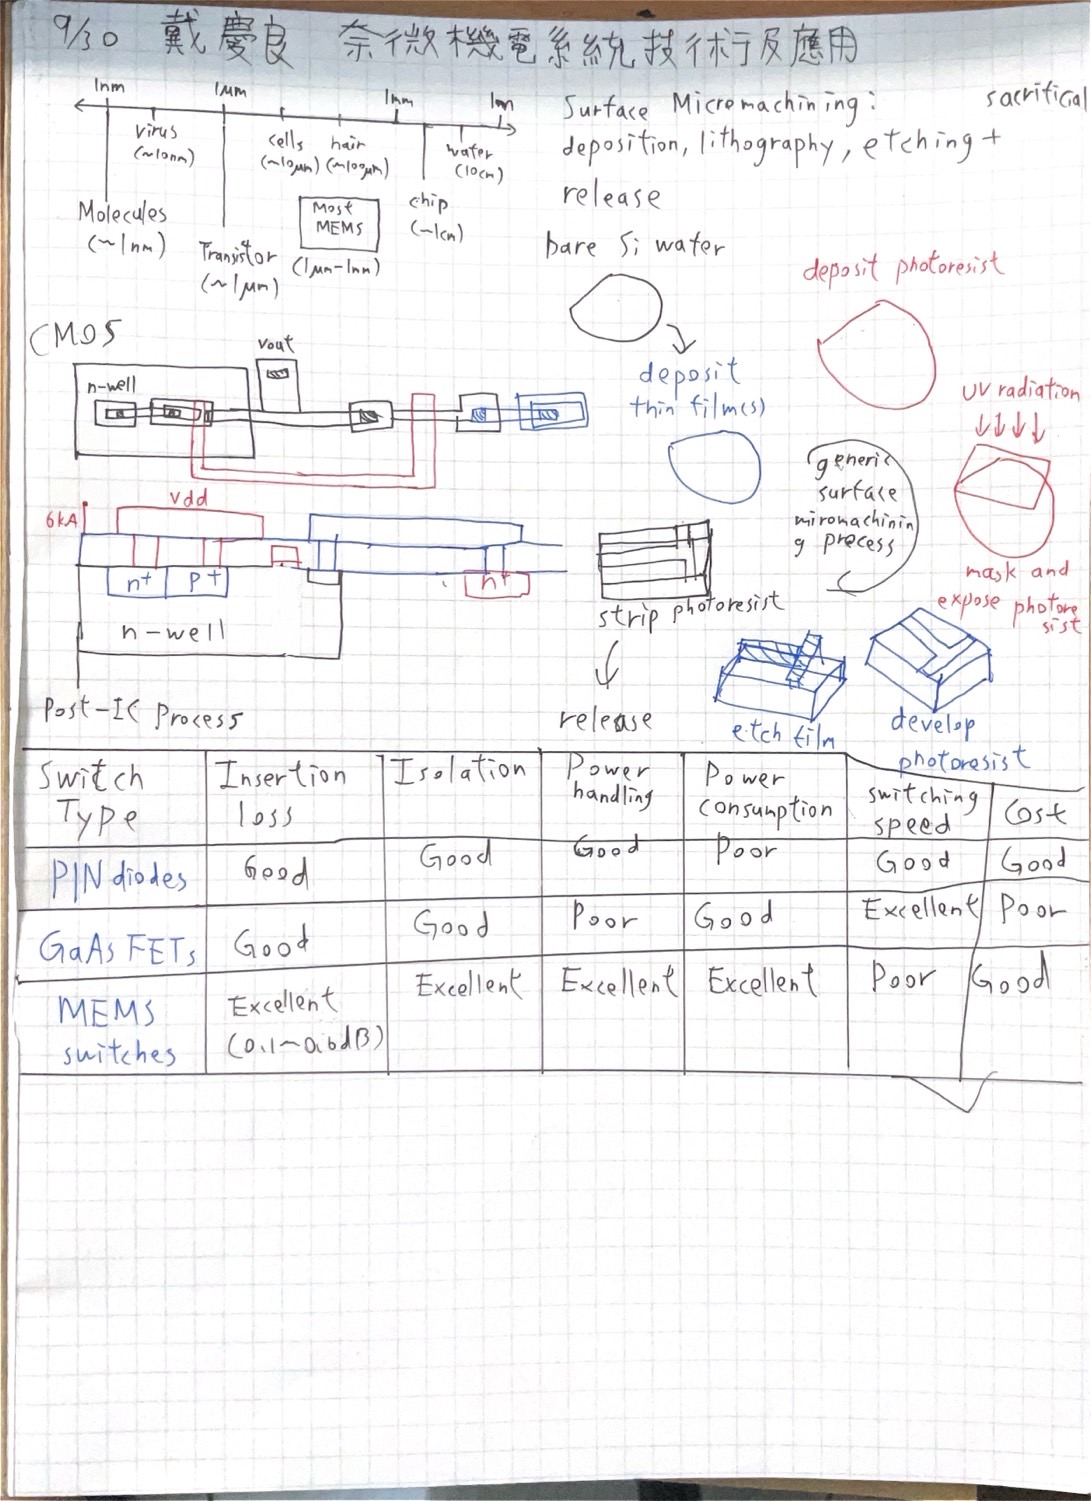 9/30 戴慶良 奈微機電系統技術行及應用
1nm 1μm 1mm 1m
virus
(~10nm)
cells
(~10μm)
hair
(~100μm)
water
(10cm)
Molecules
(~1nm)
Transistor
(~1μm)
Most
MEMS
(1μm-1mm)
chip
(~1cm)
Surface Micromachining: sacrificial
deposition, lithography, etching +
release
bare Si water
deposit photoresist
deposit
thin film(s)
UV radiation
generic
surface
miromachinin
g process
mask and
expose photore
sist
strip photoresist
release
etch film
develop
photoresist
CMOS
Vout
n-well
Vdd
6kA
n+ p+ n+
n-well
Post-IC Process
Switch
Type
Insertion
loss
Isolation
Power
handling
Power
consumption
switching
speed
Cost
PIN diodes Good Good Good Poor Good Good
GaAs FETs Good Good Poor Good Excellent Poor
MEMS
switches
Excellent
(0.1~0.6dB)
Excellent Excellent Excellent Poor Good